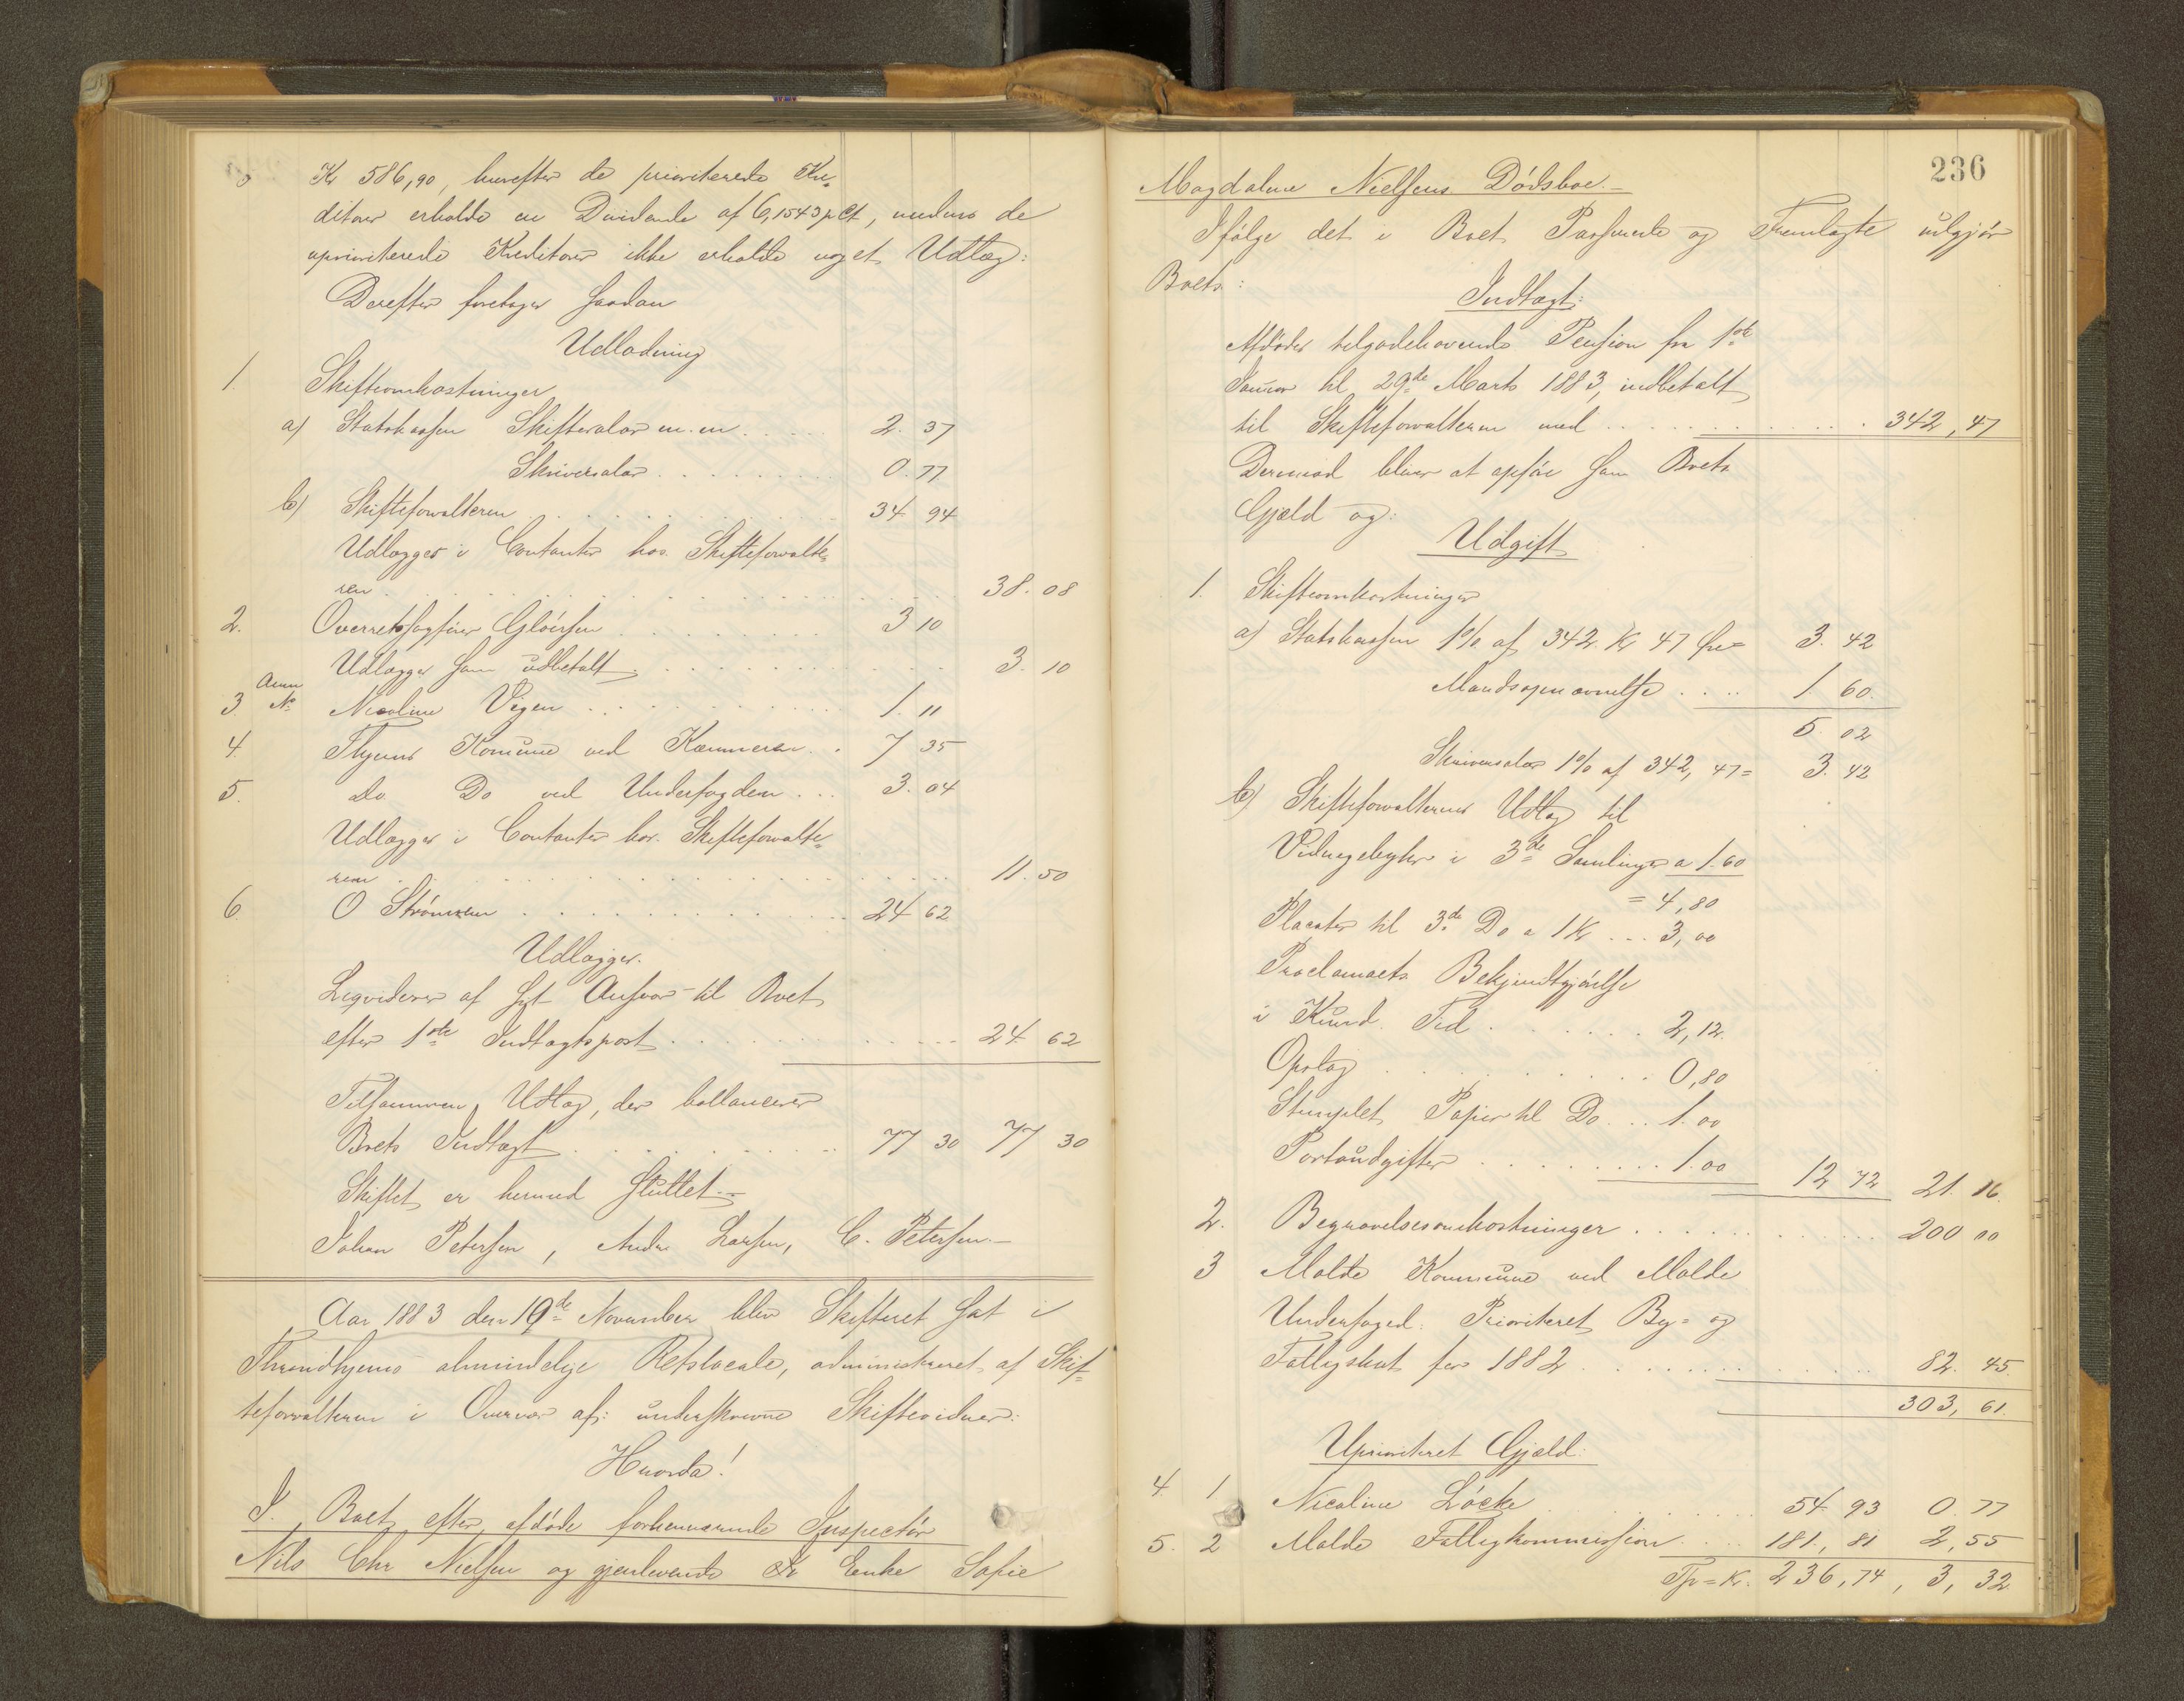 Kr 586,90, hvorefter de prioriterede Kre-
ditorer erholde en Dividende af 6,1543 pCt, medens de
uprioriterede Kreditorer ikke erholde noget Udlæg:
Derefter foretages saadan
Udlodning
1. Skifteomkostninger
a) Statskassen Skiftesalær m. m. 2. 37
Skriversalær 0. 77
b) Skifteforvalteren 34 94
Udlægges i Contanter hos Skifteforvalte-
ren 38. 08
2. Overretssagfører Gløersen 3 10
Udlægges som udbetalt 3. 10
Anm
3. No Nicoline Vigen 1. 11
4. Thjems Komune ved Kæmneren 7 35
5. do Do ved Underfogden 3. 04
Udlægges i Contanter hos Skifteforvalte-
ren 11. 50
6. O Strömmen 24 62
Udlægges.
Liqviderer af sit Ansvar til Boet
efter 1ste Indtægtspost 24 62
Tilsammen Udlæg, der ballancerer
Boets Indtægt 77 30 77 30
Skiftet er hermed sluttet.-
Johan Petersen, Andr Larsen, C. Petersen.-
Aar 1883 den 19de November blev Skifteret sat i
Throndhjems almindelige Retslocale, administreret af Skif-
teforvalteren i Overvær af: underskrevne Skiftevidner:
Hvorda!
I. Boet efter afdøde forhenværende Inspectør
Nils Chr Nielsen og gjenlevende Enke Sofie
236
Magdalene Nielsens Dødsboe.-
Ifølge det i Boet Passerede og Fremlagte udgjør
Boets:
Indtægt:
Afdødes tilgodehavende Pension fra 1ste
Januar til 29de Marts 1883, indbetalt
til Skifteforvalteren med 342, 47
Derimod bliver at opføre som Boets
Gjæld og:
Udgift
1. Skifteomkostninger
a) Statskassen 1% af 342 Kr 47 Øre= 3. 42
Mandsopnævnelse 1 60.
5 02
Skriversalær 1% af 342, 47= 3. 42
b) Skifteforvalterens Udlæg til
Vidnegebyhr i 3de Samlinger a 1.60
= 4,80
Placater til 3de Do a 1 Kr 3,00
Proclamaets Bekjendtgjørelse
i Kund. Tid 2,12.
Opslag 0,80
Stemplet Papir til Do 1.00
Portoudgifter 1.00 12 72 21. 16.
2. Begravelsesomkostninger 200 00
3 Molde Kommune ved Molde
Underfoged: Prioriteret By- og
Fattigskat for 1882 82. 45.
303, 61.
Uprioriteret Gjæld:
4 1 Nicoline Löcke 54 93 0. 77
5. 2 Molde Fattigkommission 181, 81 2,55
Tp=Kr. 236,74, 3, 32